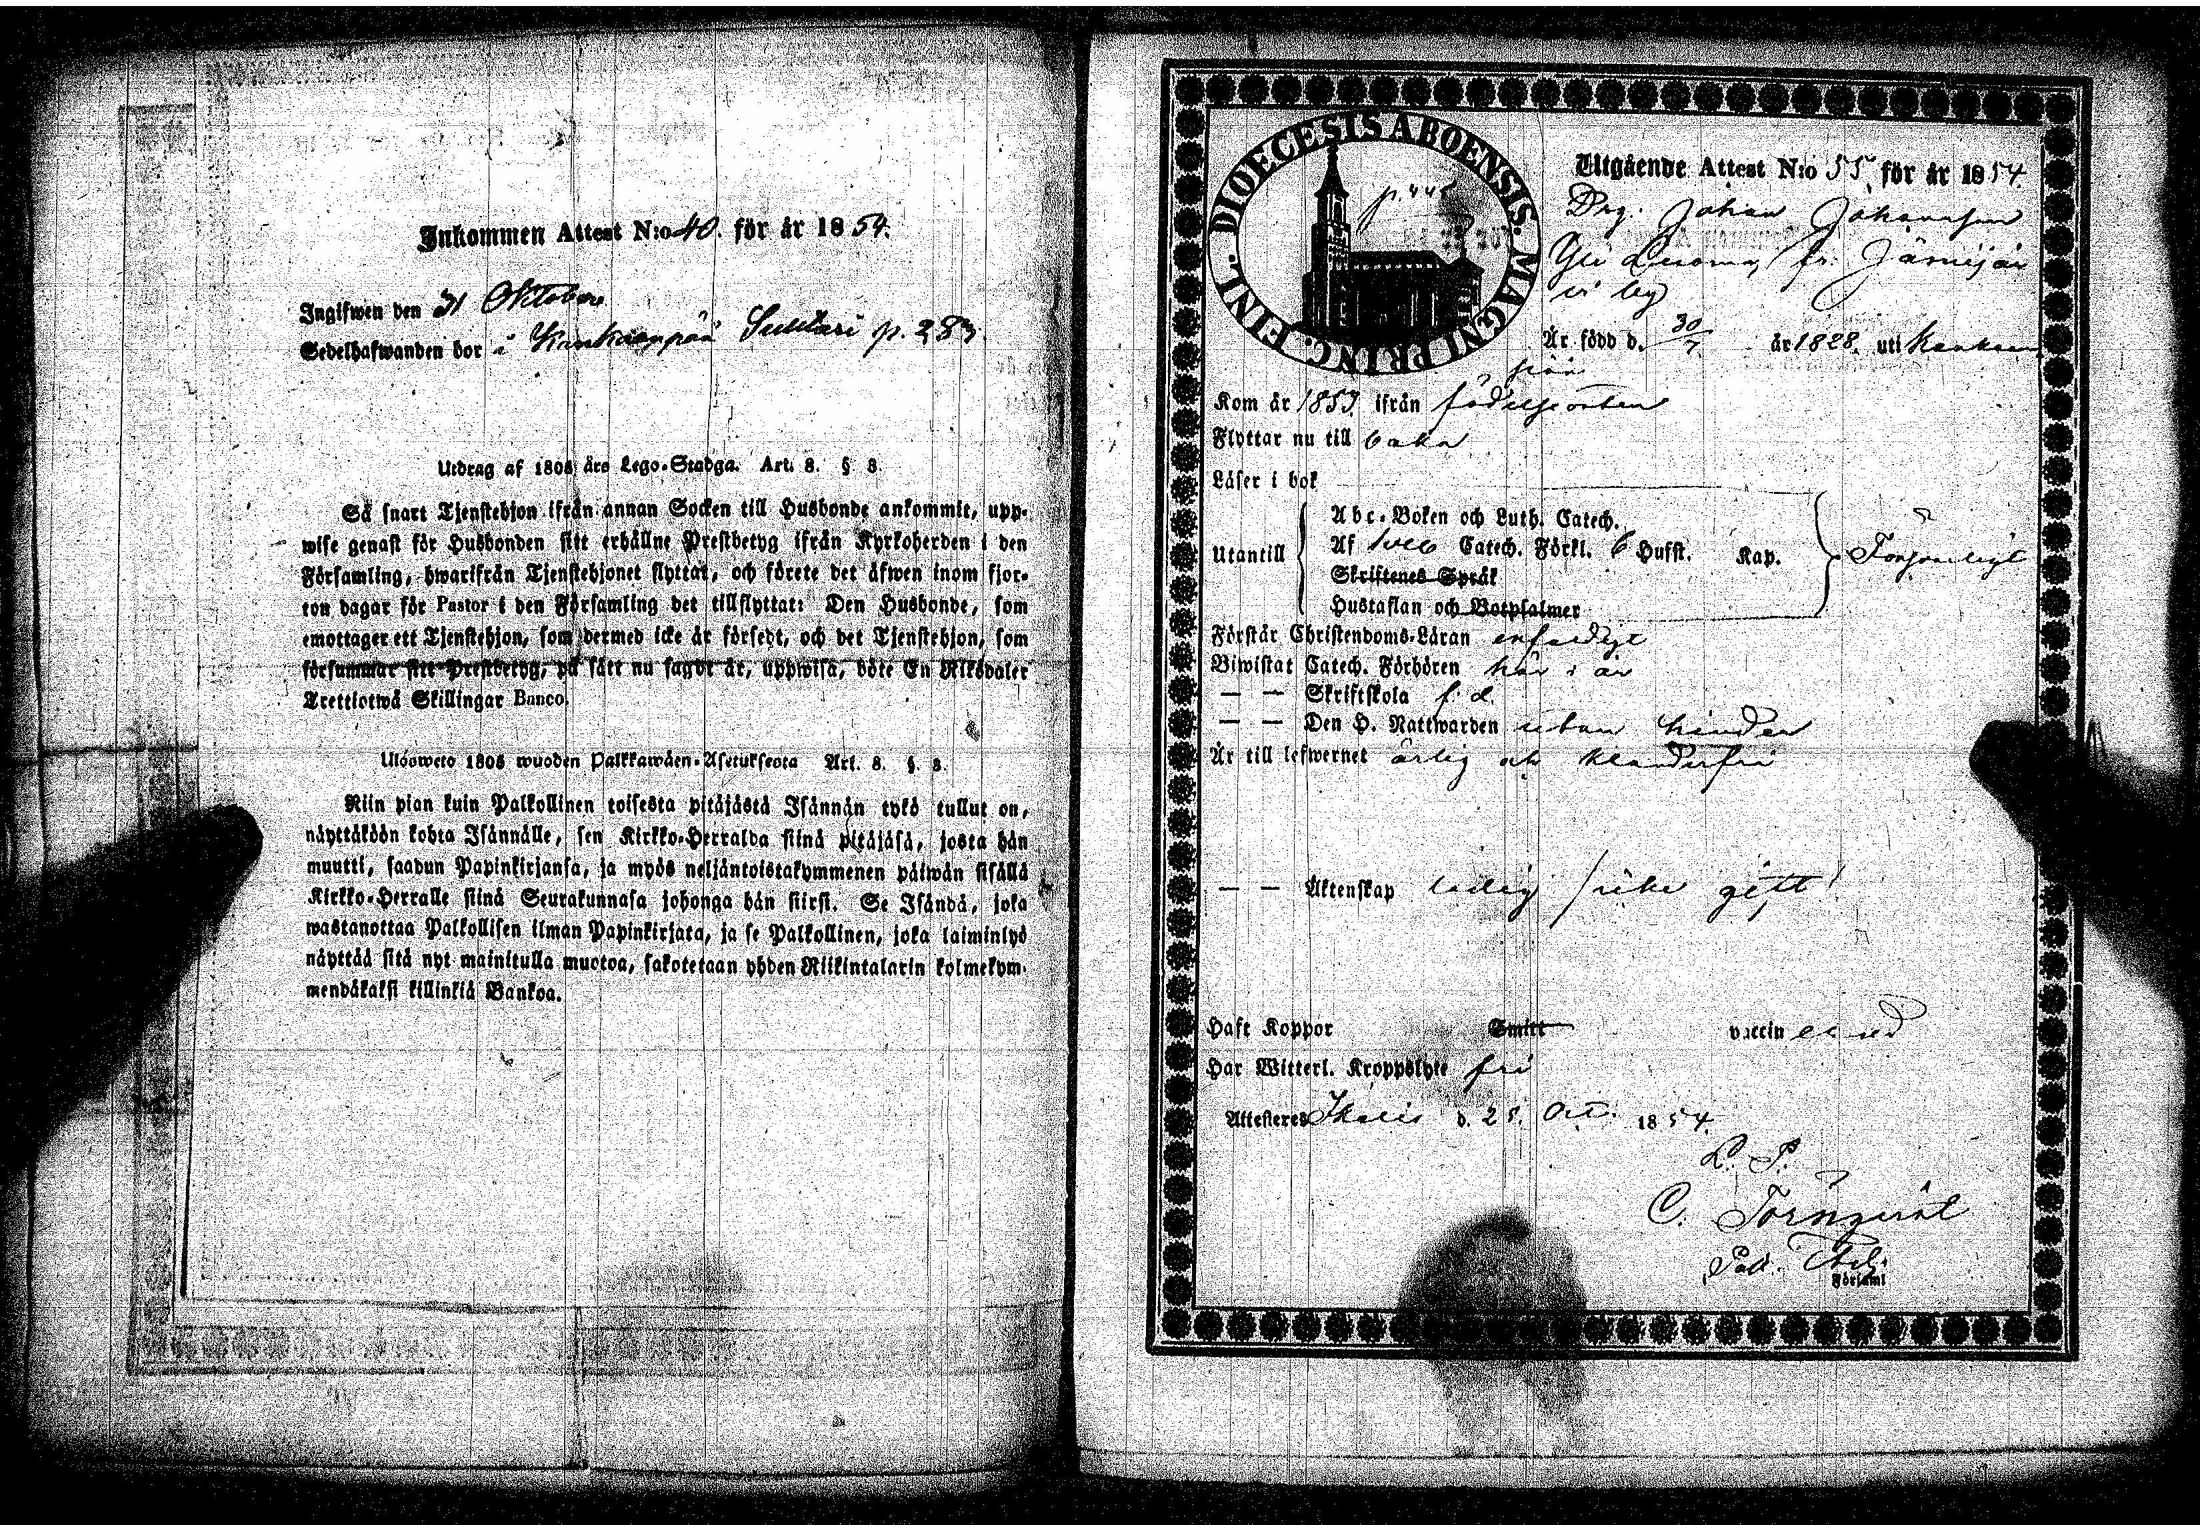 Inkommen Attest N:o 40. för år 1854.
Ingifwen den 31 Oktober
Sedelhafwanden bor i Kankaanpää Suktari p. 283.
Utdrag af 1805 års Lego-Stadga. Art. 8. § 8.
Så snart Tjenstehjon ifrån annan Socken till Husbonde ankommit, upp-
wise genast för Husbonden sitt erhållne Prestbetyg ifrån Kyrkoherden i den
Församling, hwarifrån Tjenstehjonet flyttat, och förete det äfwen inom fjor-
ton dagar för Pastor i den Församling det tillflyttat: Den Husbonde, som
emottager ett Tjenstehjon, som dermed icke är försedt, och det Tjenstehjon, som
försummar sitt Prestbetyg, på sätt nu sagdt är, uppwisa, böte En Riksdaler
Trettiotwå Skillingar Banco.
Ulosweto 1805 wuoden Palkkawäen-Asetuksesta Art. 8. §. 8.
Niin pian kuin Palkollinen toisesta pitäjästä Isännän tykö tullut on,
näyttäköön kohta Isännälle, sen Kirkko-Herralda siinä pitäjäsä, josta hän
muutti, saadun Papinkirjansa, ja myös neljäntoistakymmenen päiwän sisällä
Kirkko-Herralle siinä Seurakunnasa johonga hän siirsi. Se Isändä, joka
wastanottaa Palkollisen ilman Papinkirjata, ja se Palkollinen, joka laiminlyö
näyttää sitä nyt mainitulla muotoa, sakotetaan yhden Riikintalarin kolmekym-
mendäkaksi killinkiä Bankoa.
DIOECESIS ABOENSIS. MAGNI PRINC. FINL.
p. 445
Utgående Attest N:o 55 för år 1854.
Drg. Johan Johansson
Yli Luoma, fr. Järvijär
vi by
Är född d. 30/7 år 1828. uti Kankaan
pää
Kom år 1853 ifrån födelseorten
Flyttar nu till baka
Läser i bok
Utantill
Abc-Boken och Luth. Catech.
Af Sveb Catech. Förkl. 6 Hufst. Kap.
Skriftenes Språk
Hustaflan och Botpsalmer
Försvarligt
Förstår Christendoms-Läran enfaldigt
Biwistat Catech. Förhören här i år
— — Skriftskola f. d.
— — Den H. Nattwarden utan hinder
Är till lefwernet ärlig och klanderfri
— — Äktenskap ledig / icke gift!
Haft Koppor Smitt vaccin erad
Har Witterl. Kroppslyte fri
Attesteres Ikalis d. 25. Oct. 1854.
L. P.
C. Törnqvist
Församl